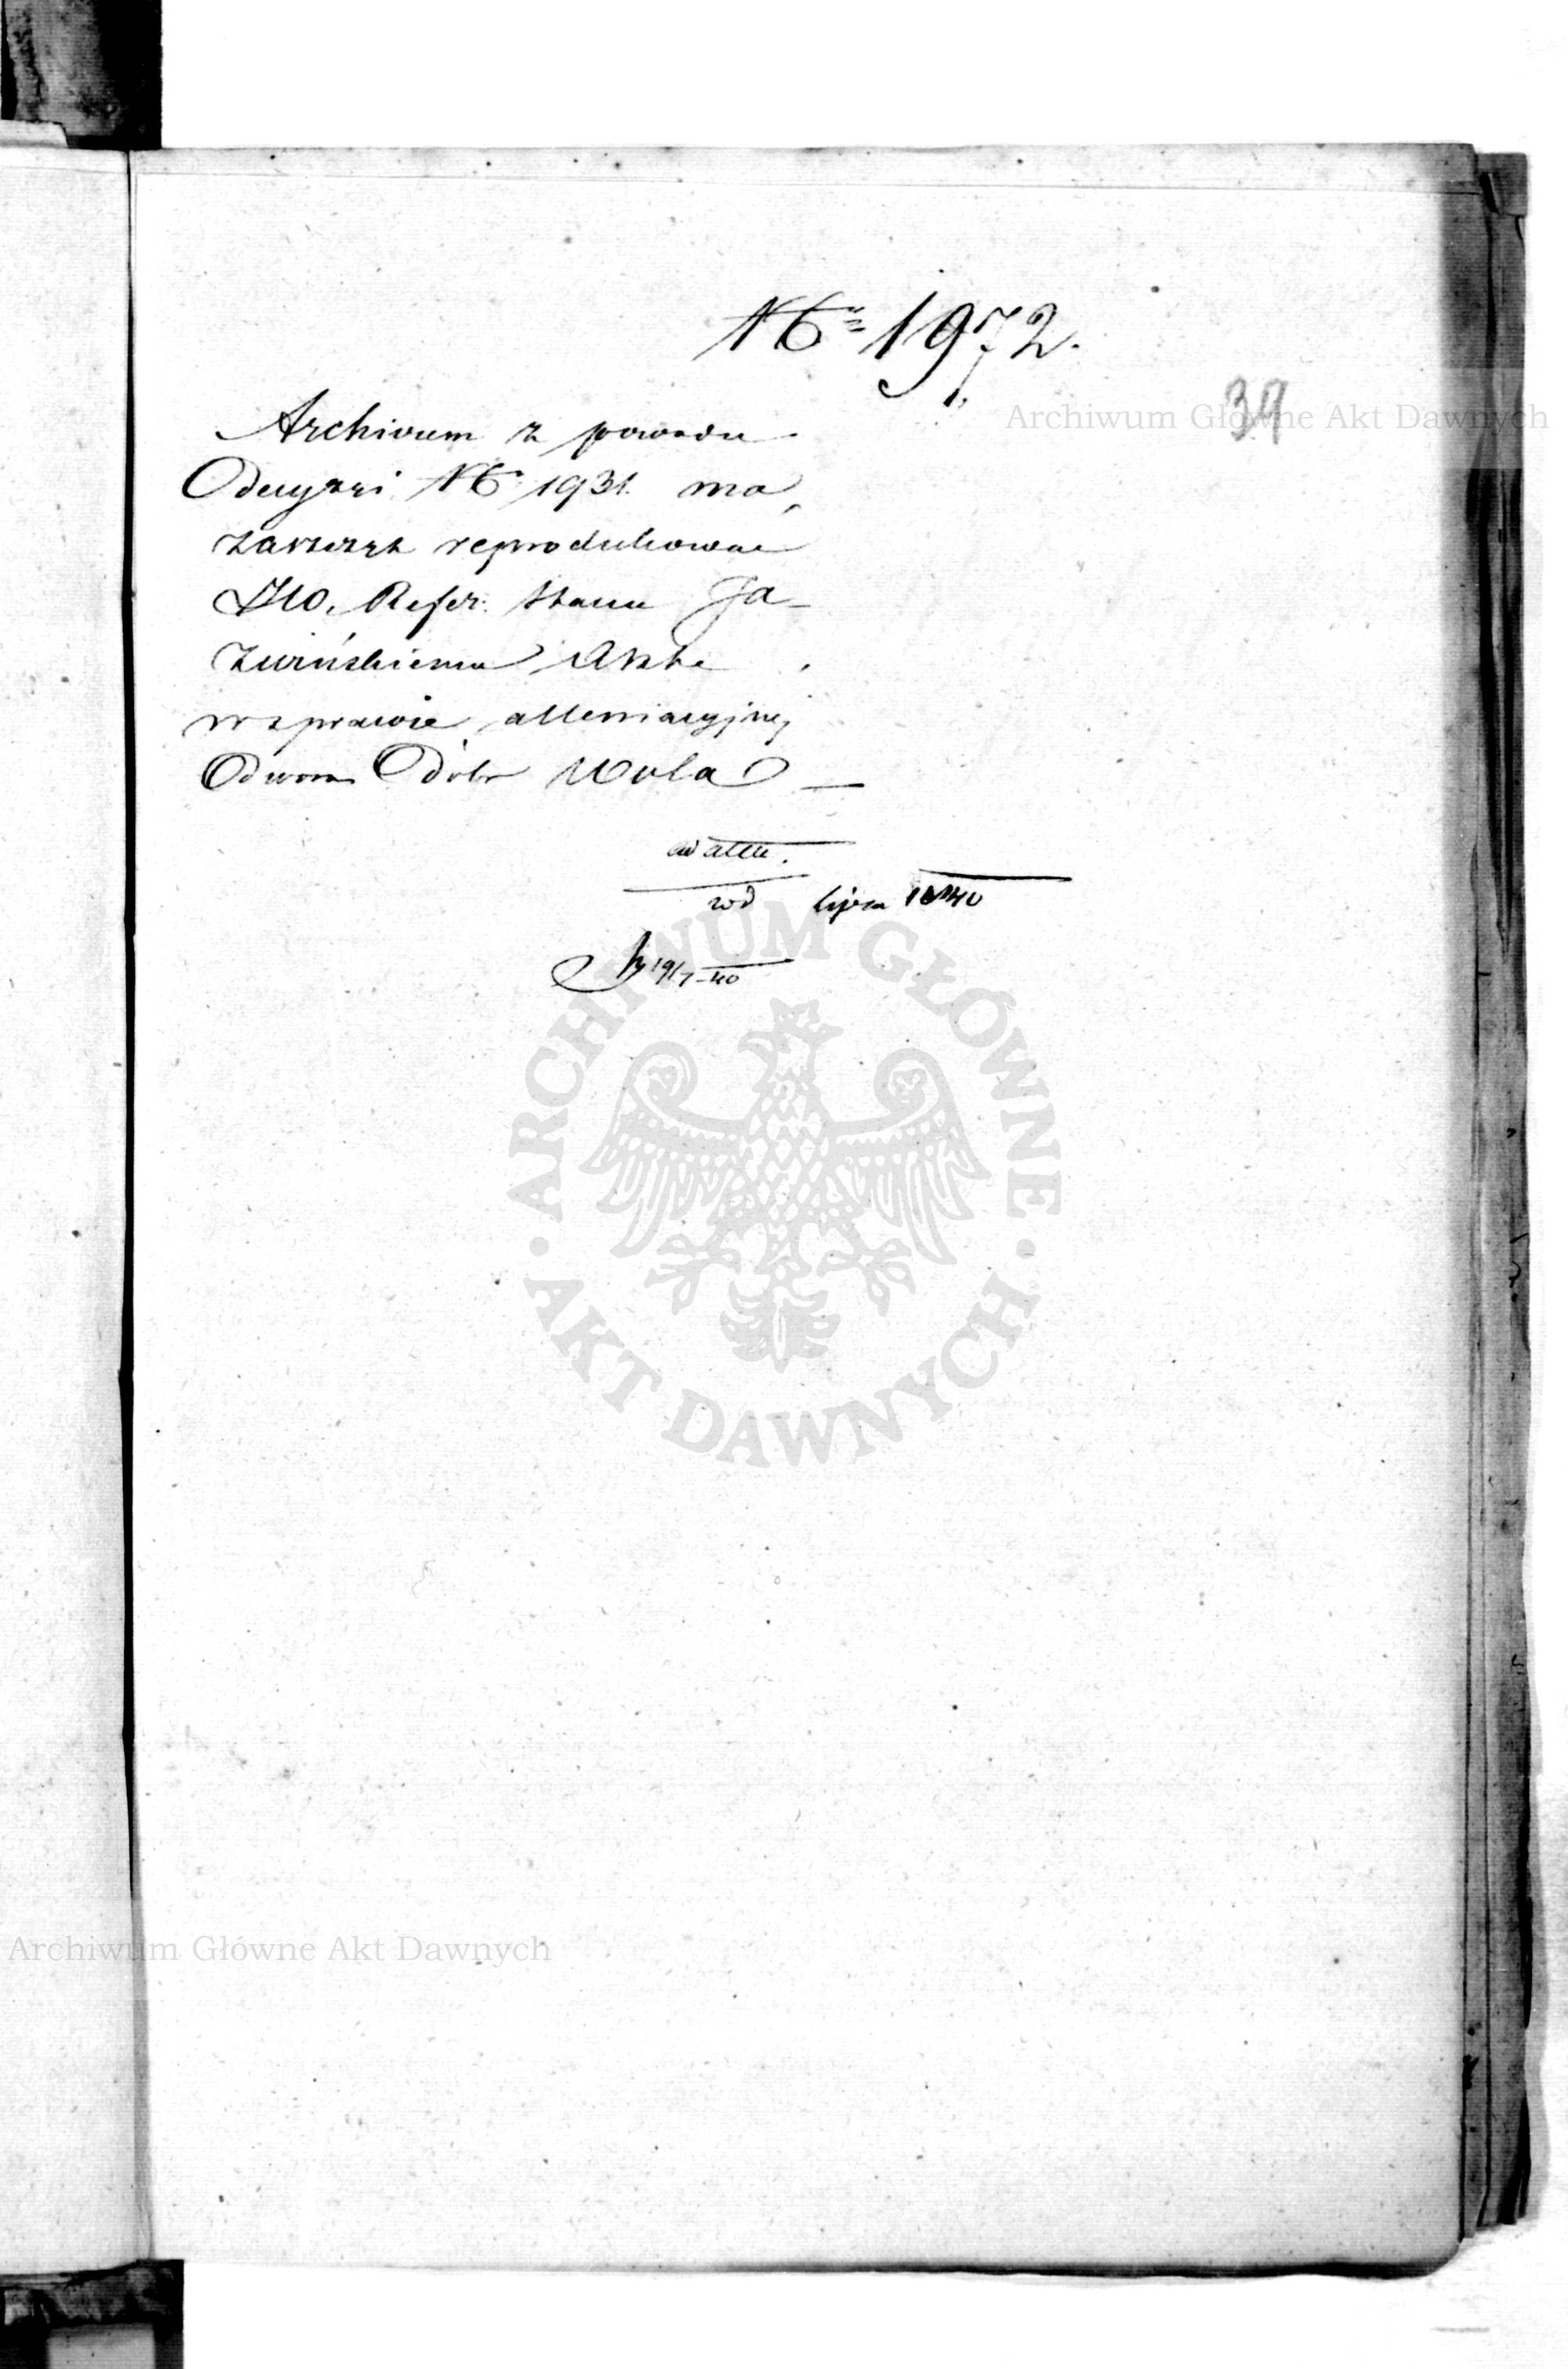 № 1972.
39
Archiwum Główne Akt Dawnych
Archivum z powodu
Decyzzi № 1931. ma
zawsze reprodukowac
JW. Refer: Stanu Ja-
Akta
w sprawie allewiacyjnej
Dworu Dóbr Wola —
ad acta.
lipca 1840
19/7-40
ARCHIWUM GŁÓWNE
AKT DAWNYCH
Archiwum Główne Akt Dawnych